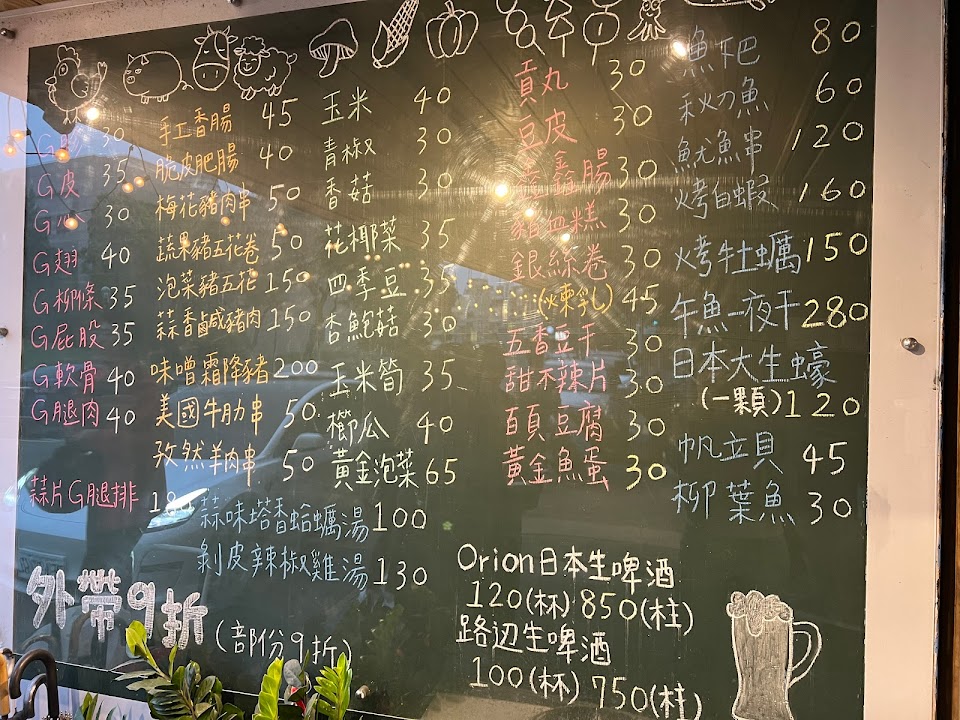 G 30
G皮 35
G心 30
G翅 40
G柳條 35
G屁股 35
G軟骨 40
G腿肉 40
蒜片G腿排
手工香腸 45
脆皮肥腸 40
梅花豬肉串 50
蔬果豬五花卷 50
泡菜豬五花 150
蒜香鹹豬肉 150
味噌霜降豬 200
美國牛肋串 50
孜然羊肉串 50
玉米 40
青椒 30
香菇 30
花椰菜 35
四季豆 35
杏鮑菇 30
玉米筍 35
櫛瓜 40
黃金泡菜 65
蒜味塔香蛤蠣湯 100
剝皮辣椒雞湯 130
貢丸 30
豆皮 30
鑫腸 30
豬血糕 30
銀絲卷 30
(火東乳) 45
五香豆干 30
甜不辣片 30
百頁豆腐 30
黃金魚蛋 30
魚下巴 80
秋刀魚 60
魷魚串 120
烤白蝦 160
烤牡蠣 150
午魚一夜干 280
日本大生蠔
(一顆) 120
帆立貝 45
柳葉魚 30
外帶9折
(部份9折)
Orion日本生啤酒
120(杯) 850(柱)
路辺生啤酒
100(杯) 750(柱)